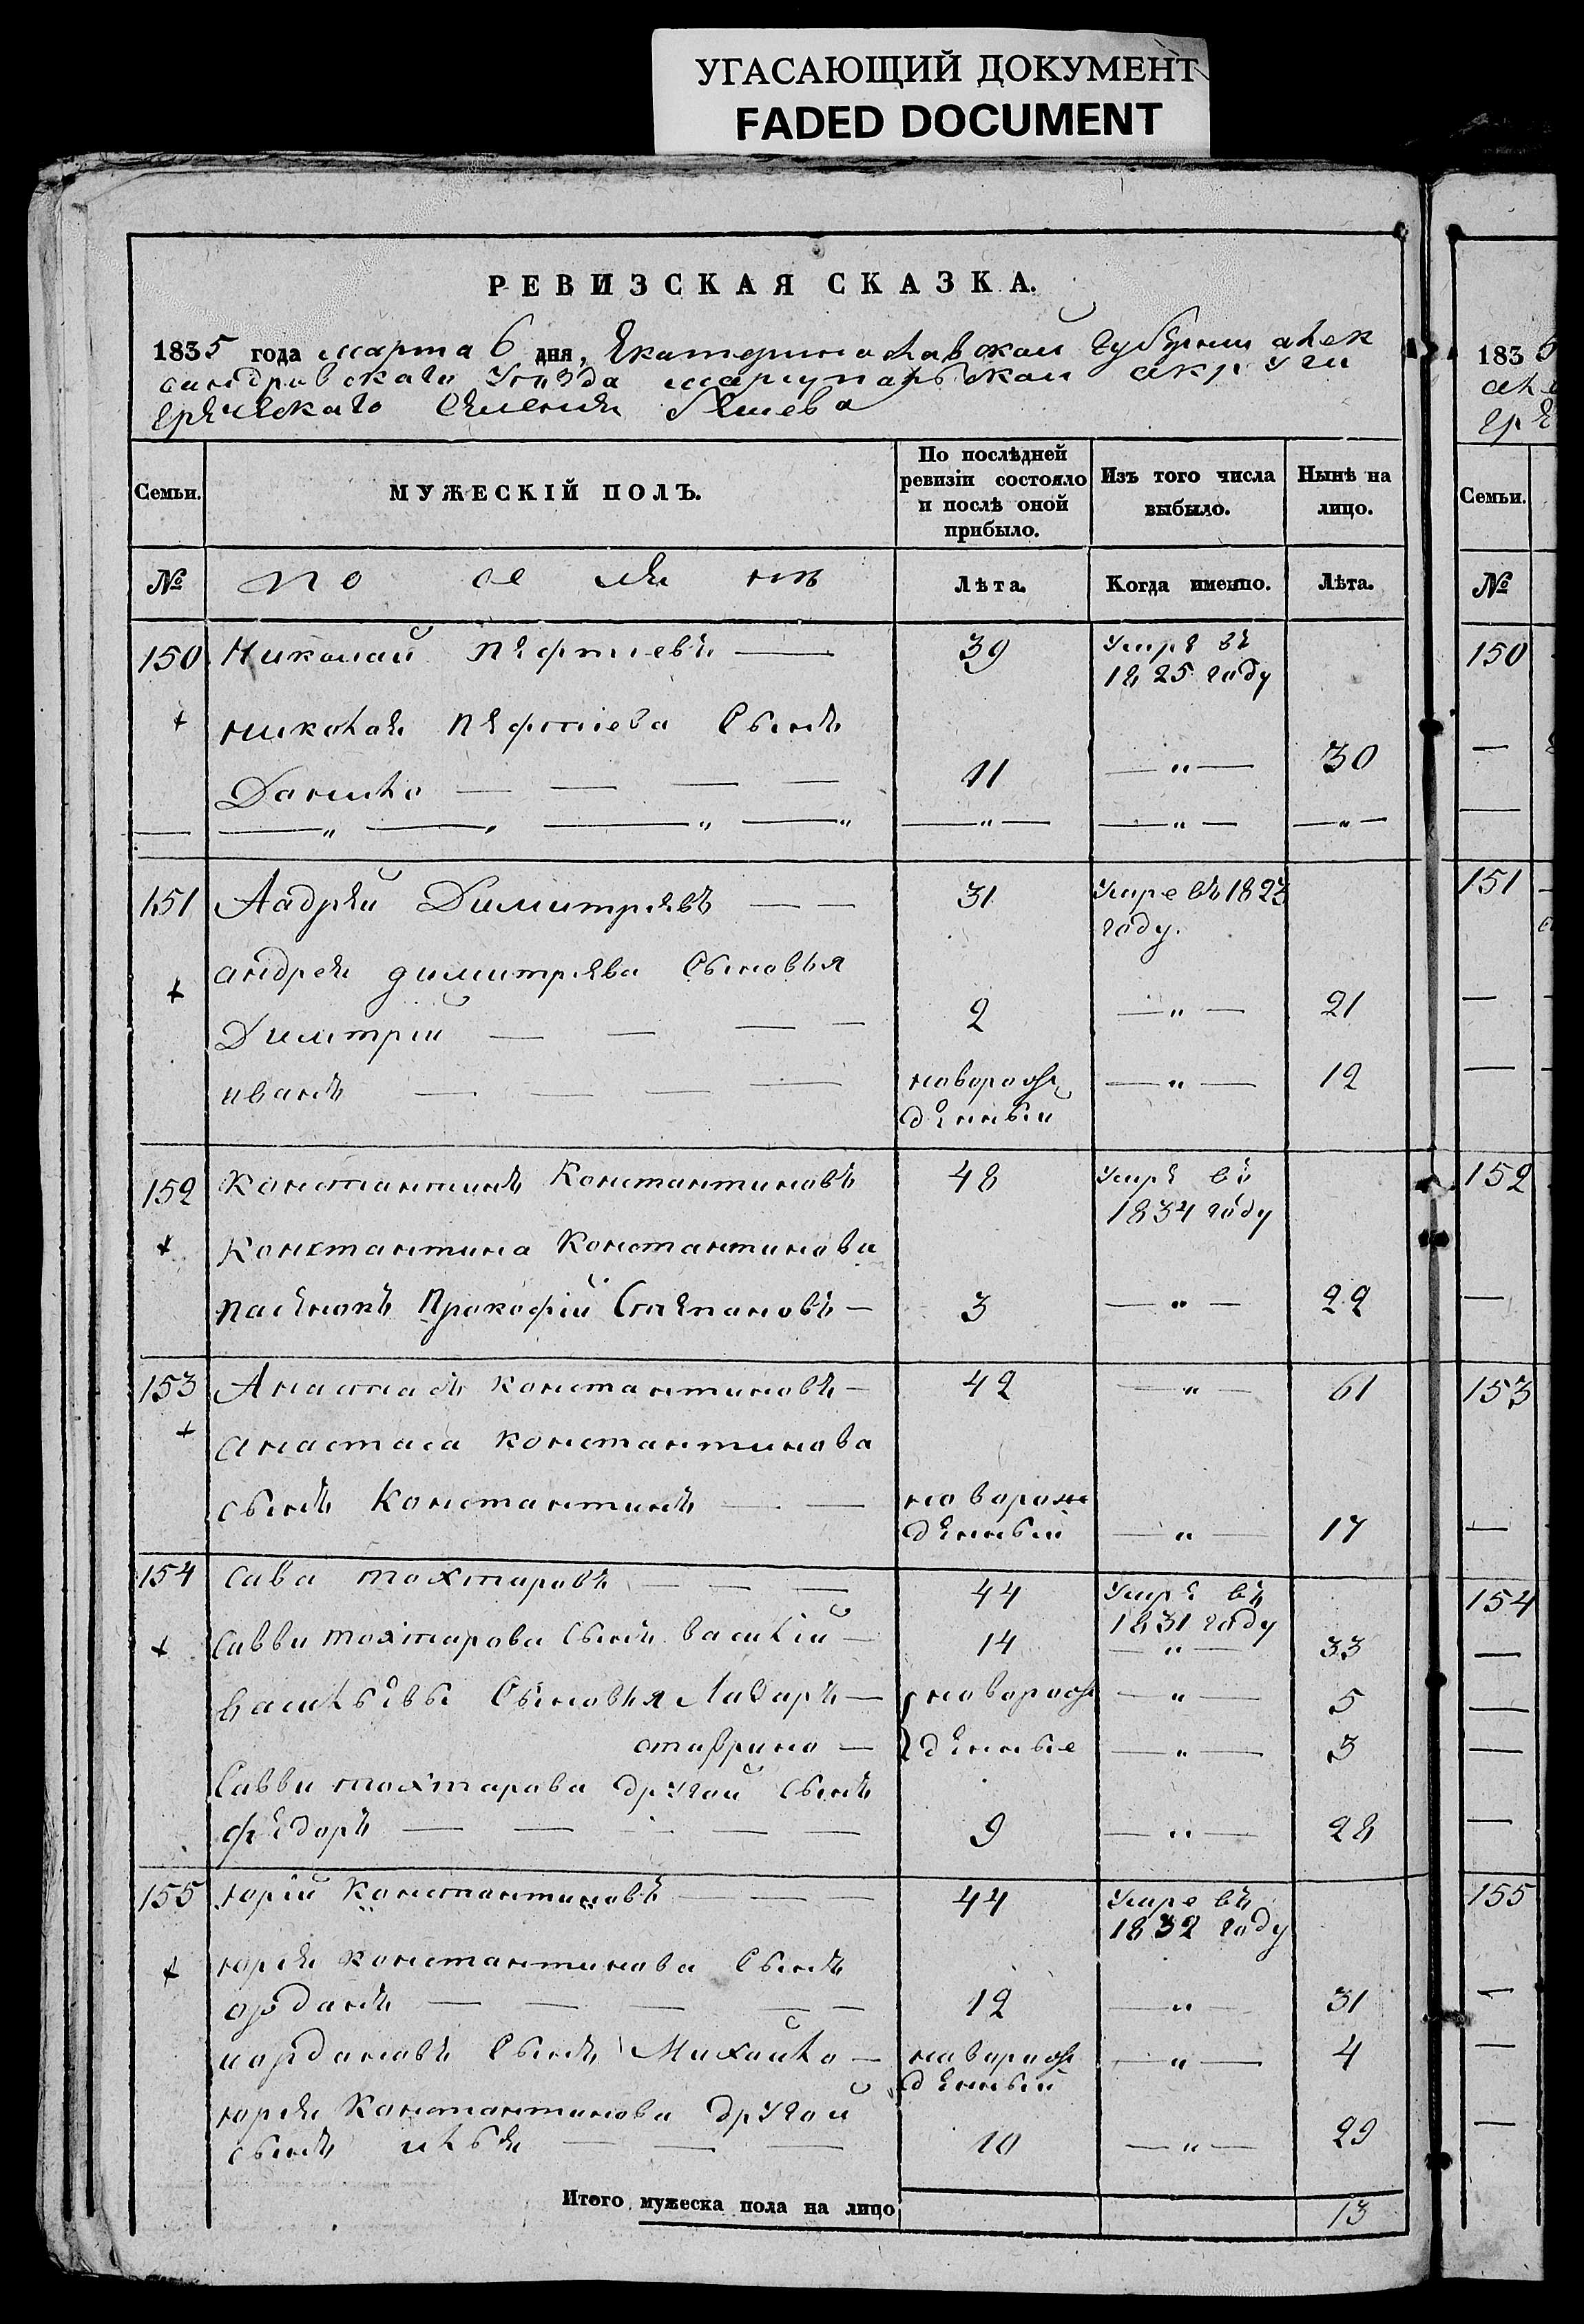 УГАСАЮЩИЙ ДОКУМЕНТ
FADED DOCUMENT
РЕВИЗСКАЯ СКАЗКА.
1835 года марта 6 дня, Екатеринославской Губернии алек
сандровскаго Уезда мариупольской округи
греческаго селения Бешева
Семьи.
МУЖЕСКІЙ ПОЛЪ.
По послѣдней ревизіи состояло и послѣ оной прибыло.
Изъ того числа выбыло.
Нынѣ на лицо.
№ по се ля нъ Лѣта. Когда именно. Лѣта.
150 Николай Пефтиевъ — 39 Умре въ
1825 году
+ николая Пефтіева Сынъ
Данило — — — — 11 —"— 30
—"— —"— —"— —"— —"— —"— —"—
151 Аадрей Димитревъ — — 31 Умре въ 1823
году.
андрея димитрева Сыновья
+ Димитрій — — — — 2 —"— 21
иванъ — — — — новорож —"— 12
денный
152 Константинъ Константиновъ 48 Умре въ
1834 году
+ Константина Константинова
пасенокъ Прокофій Степановъ — 3 —"— 22
153 Анастасъ константиновъ — 42 —"— 61
+ анастаса константинова
сынъ Константинъ — — новорож
денный —"— 17
154 Сава тохтаровъ — — — 44 Умре въ
1831 году
+ Савви тохтарова Сынъ василій — 14 —"— 33
васильевы Сыновья Лазаръ — новорож —"— 5
ставрино — денные —"— 3
Савви тохтарова другой Сынъ
федоръ — — — — — 9 —"— 28
155 юрій константиновъ — — — 44 Умре въ
1832 году
+ юрея константинова Сынъ
ордань — — — — — 12 —"— 31
иордановъ Сынъ Михайло — новорож —"— 4
денный
юрея Константинова другой
сынъ илья — — — 10 —"— 29
Итого мужеска пола на лицо 13
1835
але
гре
Семьи.
№
150
151
152
153
154
155